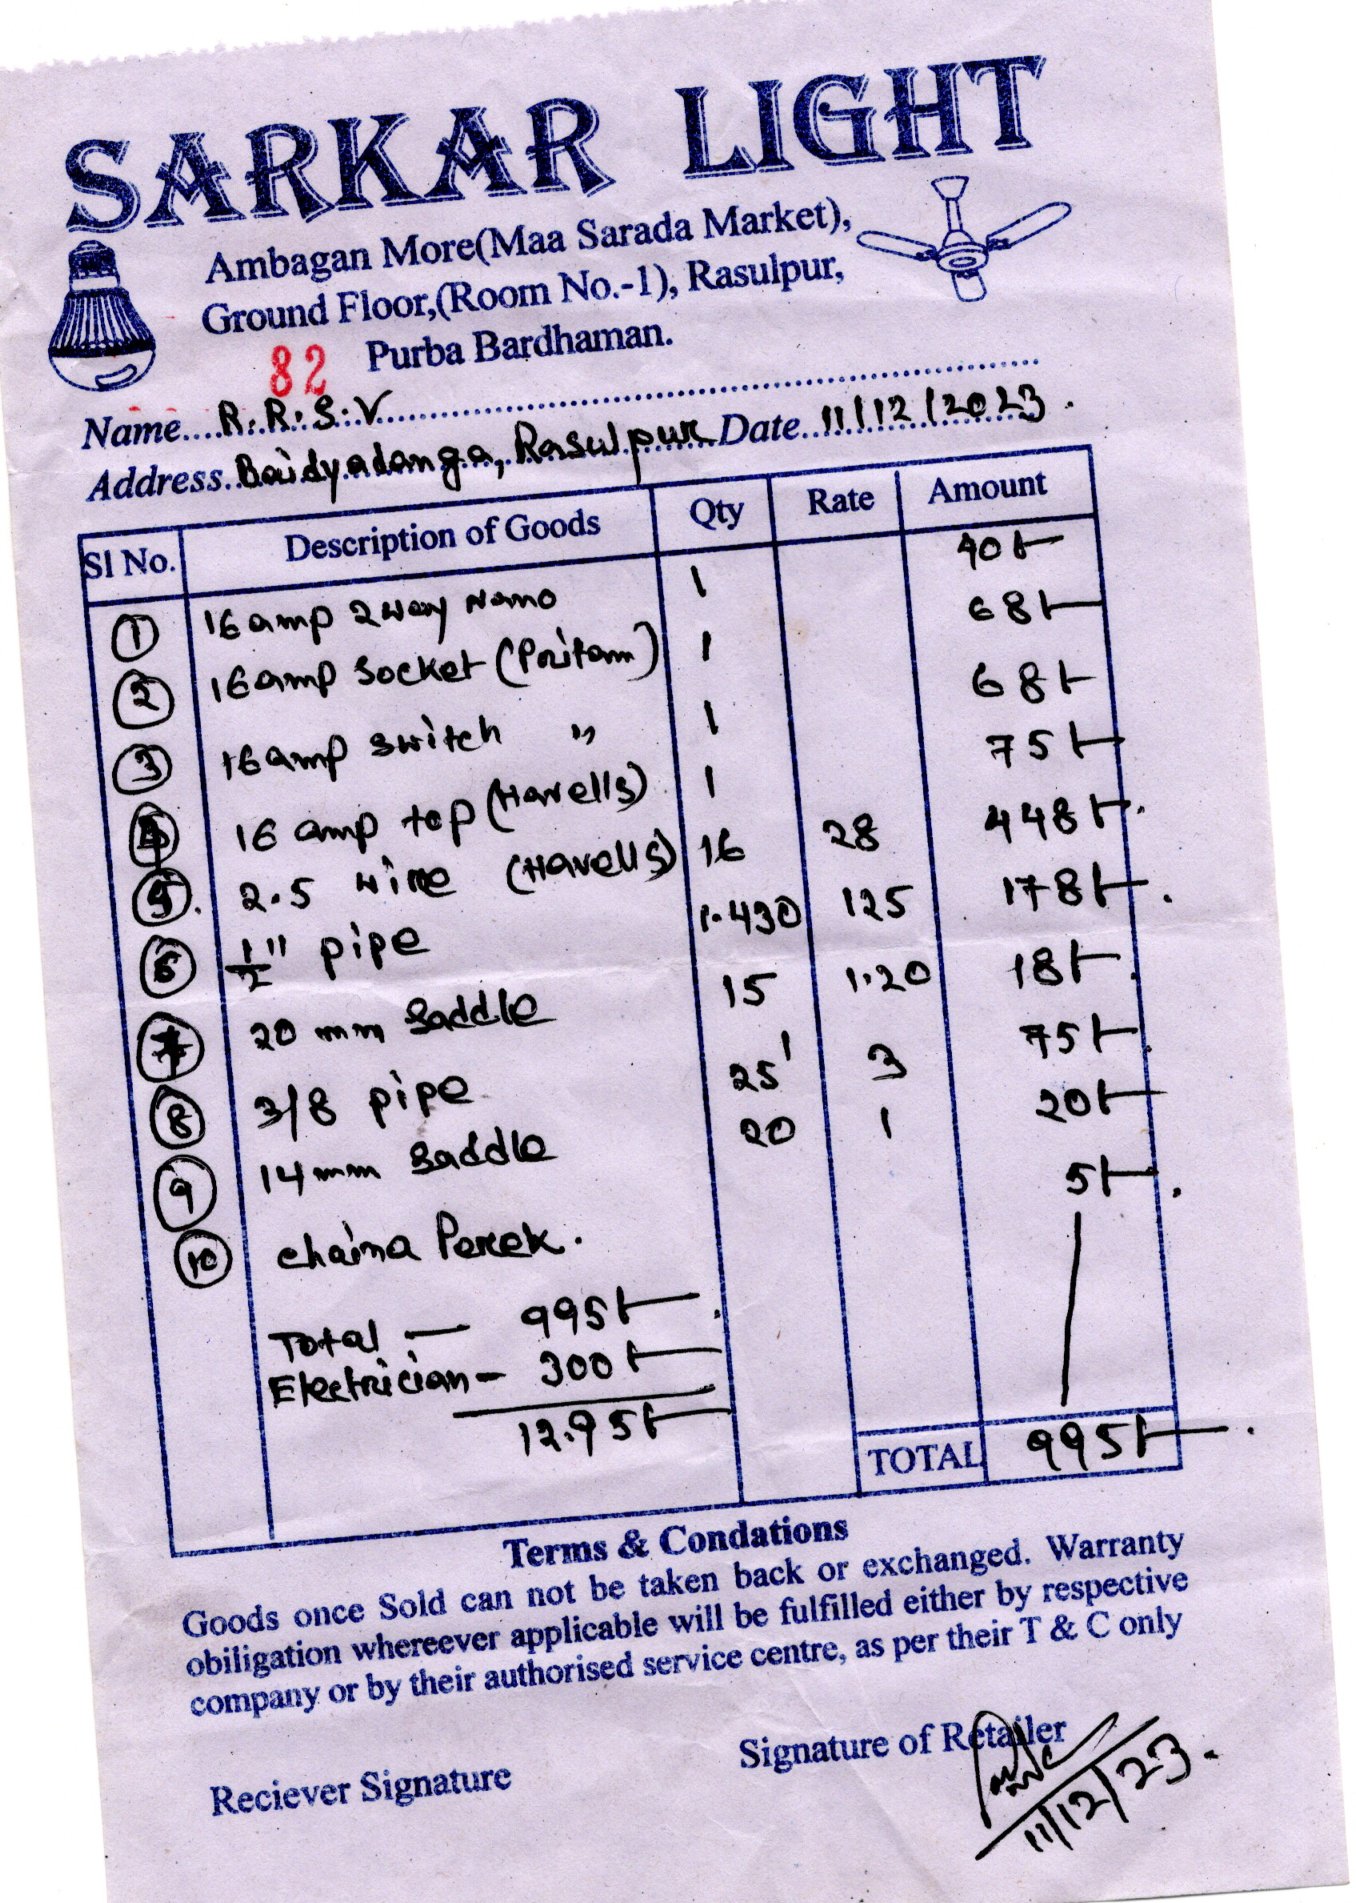 SARKAR LIGHT
Ambagan More(Maa Sarada Market),
Ground Floor,(Room No.-1), Rasulpur,
Purba Bardhaman.
82
Name....R.R.S.V
Address..Baidyadanga, Rasulpur Date..11/12/2023.
Sl No. Description of Goods Qty Rate Amount
1 16 amp 2 way Namo 1 40/-
2 16 amp Socket (Pritam) 1 68/-
3 16 amp switch " 1 68/-
4 16 amp top (Havells) 1 75/-
5. 2.5 wire (Havells) 16 28 448/-.
6 1/2" pipe 1.430 125 178/-.
7 20 mm Saddle 15 1.20 18/-.
8 3/8 pipe 25' 3 75/-
9 14 mm Saddle 20 1 20/-
10 chaina Perek. 5/-.
Total — 995/-.
Electrician - 300/-
12.95/-
TOTAL 995/-.
Terms & Condations
Goods once Sold can not be taken back or exchanged. Warranty
obiligation whereever applicable will be fulfilled either by respective
company or by their authorised service centre, as per their T & C only
Signature of Retailer
Reciever Signature
11/12/23.